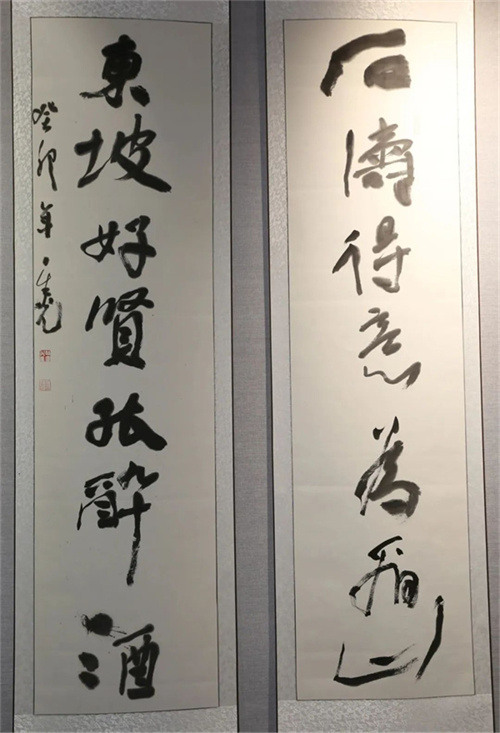 石濤得意為看山
東坡好賢能醉酒
癸卯年